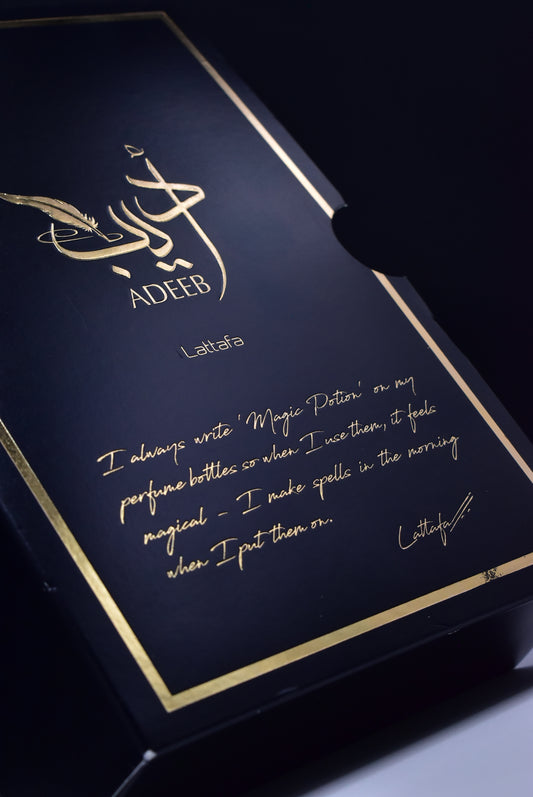 أديب
ADEEB
Lattafa
I always write 'Magic Potion' on my
perfume bottles so when I use them, it feels
magical - I make spells in the morning
when I put them on.
Lattafa